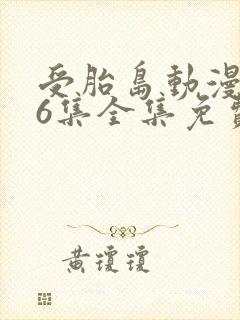 受胎島動漫
6集全集免費
黃瓊瓊